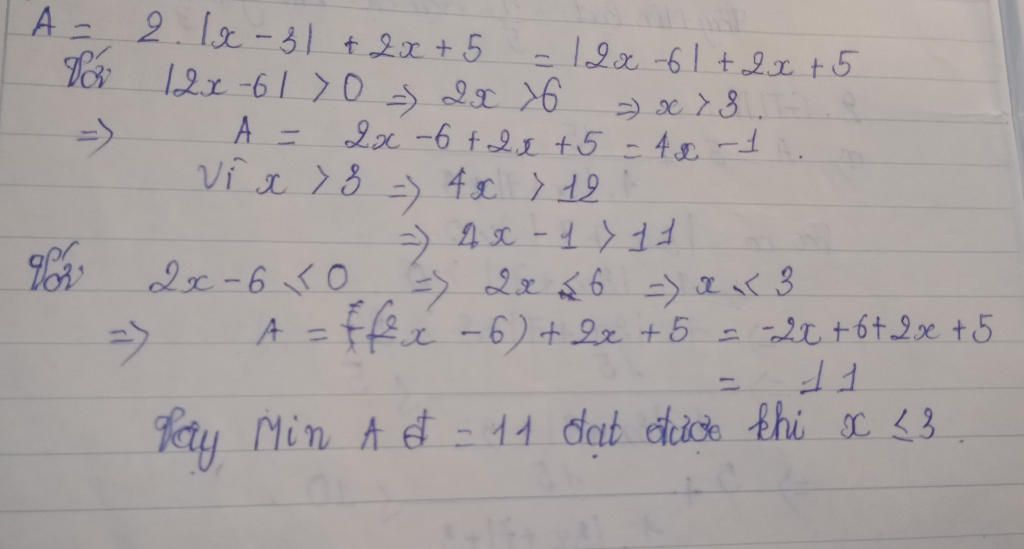 A = 2.|x - 3| + 2x + 5 = |2x - 6| + 2x + 5
Với |2x - 6| > 0 => 2x > 6 => x > 3.
=> A = 2x - 6 + 2x + 5 = 4x - 1.
Vì x > 3 => 4x > 12
=> 4x - 1 > 11
Với 2x - 6 ≤ 0 => 2x ≤ 6 => x ≤ 3
=> A = -(2x - 6) + 2x + 5 = -2x + 6 + 2x + 5
= 11
Vậy Min A = 11 đạt được khi x ≤ 3.